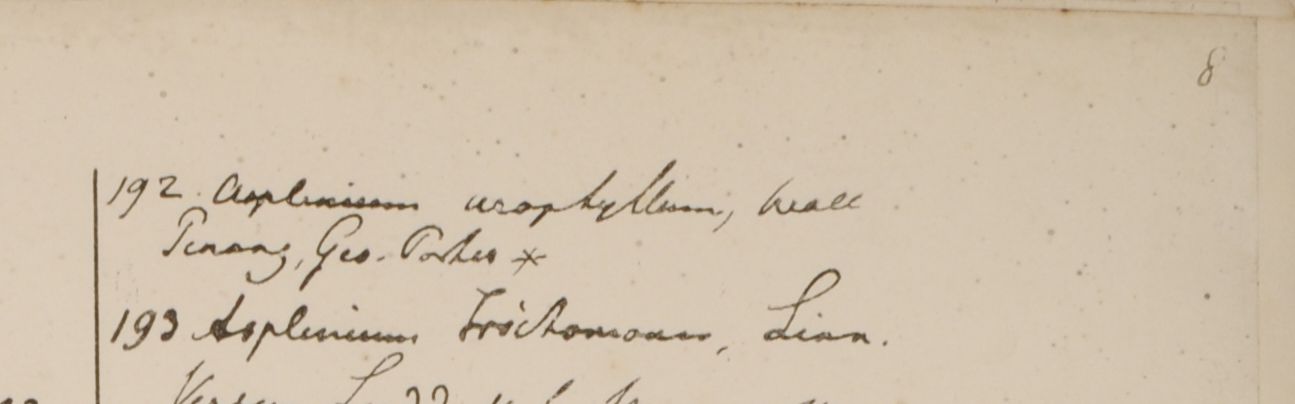 8
192. Asplenium urophyllum, Wall
Penang, Geo. Porter *
193 Asplenium Trichomanes, Linn.